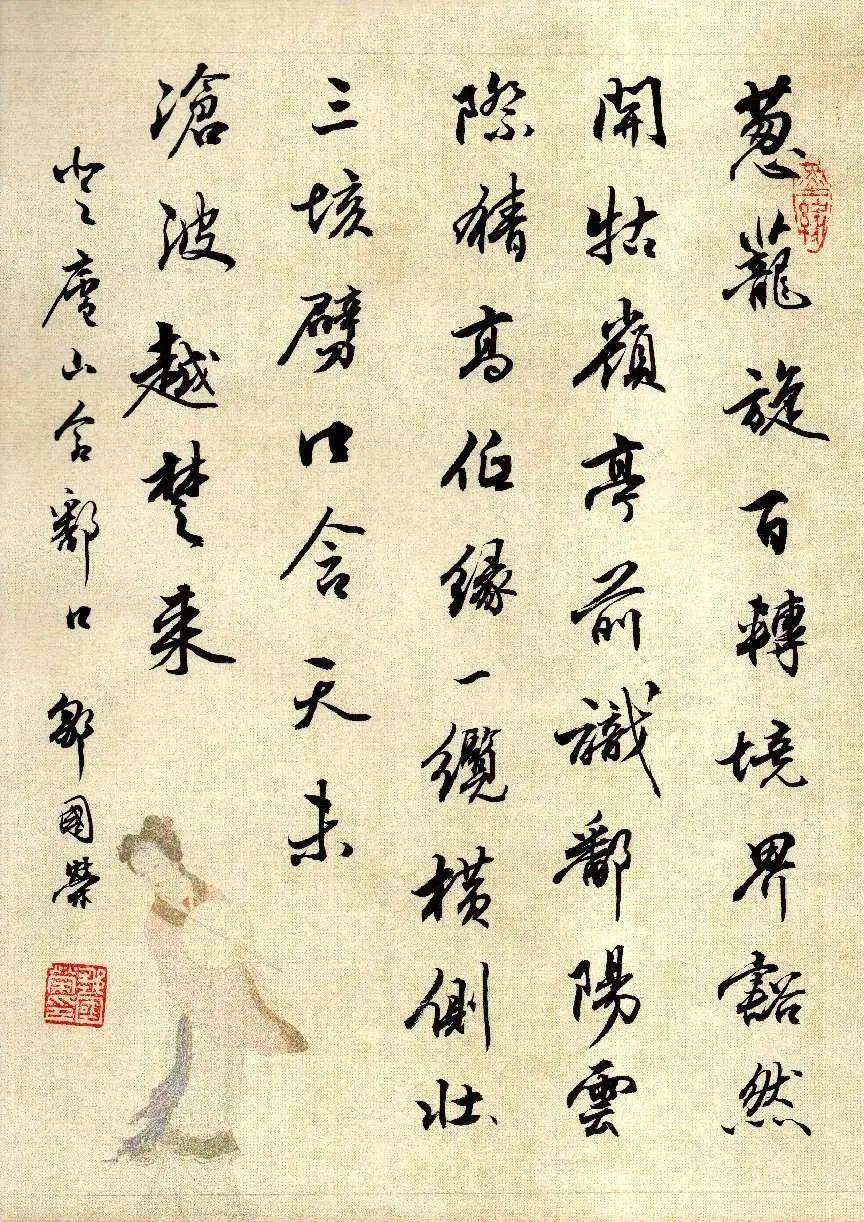 葱蘢旋百轉境界豁然
開牯嶺亭前識鄱陽雲
際猜高低緣一纜橫側壯
三垓劈口含天末
滄波越楚來
登廬山含鄱口 鄒國榮